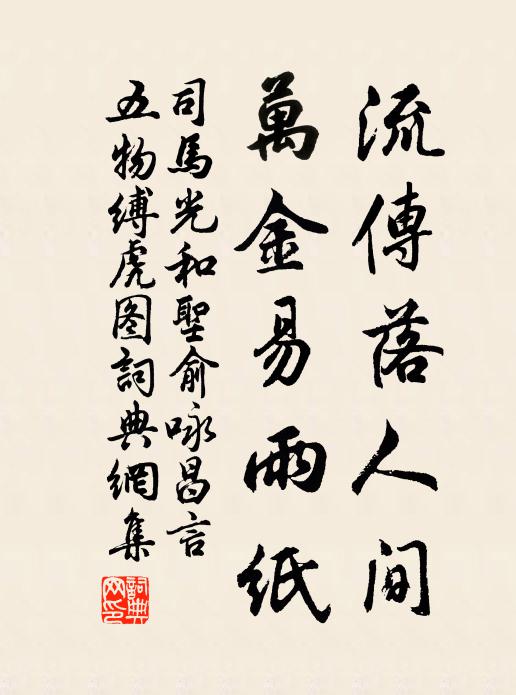 流傳落人間
萬金易兩紙
司馬光和聖俞咏昌言
五物縛虎图詞典網集
詞典网印